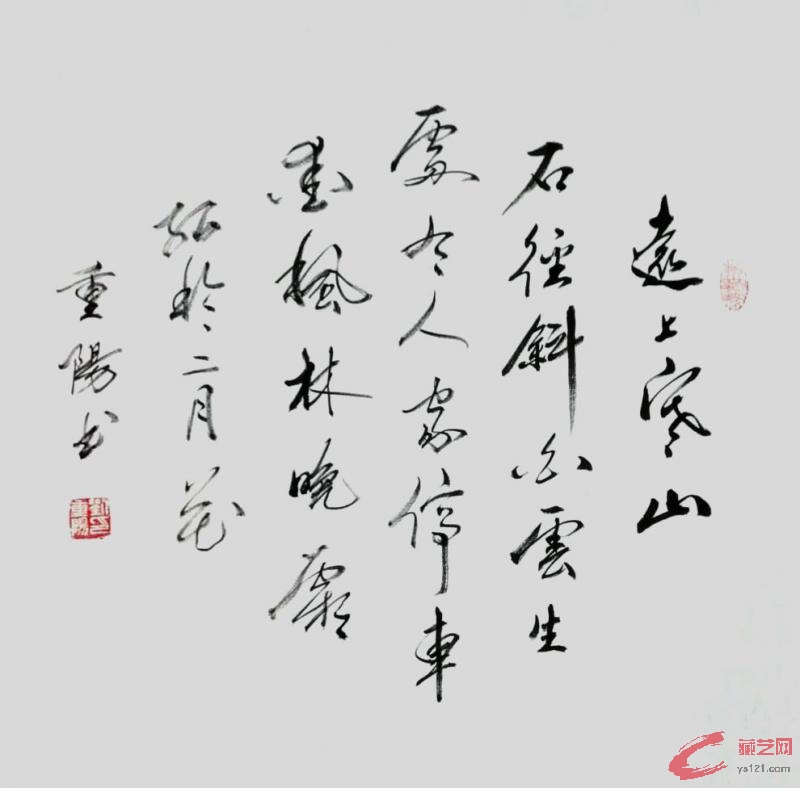 遠上寒山
石徑斜白雲生
處有人家停車
愛楓林晚霜
紅於二月花
重陽书
藏艺网
ys121.com